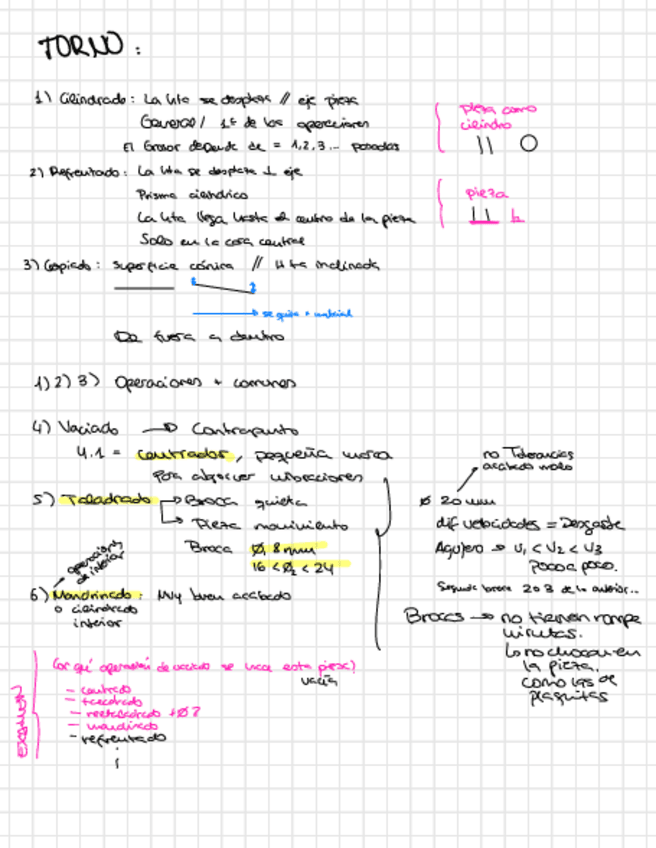 TORNO:
1) Cilindrado: La hta se desplaza // eje pieza
General / 1ª de las operaciones
El Grosor depende de = 1,2,3... pasadas
pieza como
cilindro
2) Refrentado: La hta se desplaza ⊥ eje
Prisma cilíndrico
La hta llega hasta el centro de la pieza
Solo en la cara central
pieza
3) Copiado: superficie cónica // Hta inclinada
1
2
se quita + material
De fuera a dentro
1) 2) 3) Operaciones + comunes
4) Vaciado → Contrapunto
4.1 = centrador, pequeña
Para absorver vibraciones
5) Taladrado → Broca quieta
→ Pieza movimiento
Broca Ø, 8mm
16 < Ø2 < 24
operaciones
de interior
6) Mandrinado: Muy buen acabado
o cilindrado
interior
no Tolerancias
acabado malo
Ø 20 mm
dif velocidades = Desgaste
Agujero → V1 < V2 < V3
Poco a poco.
Segunda broca 2 o 3 de la anterior...
Brocas → no tienen rompe
virutas.
Lo no chocan en
la pieza.
como las de
plaquitas
EXAMEN
¿Por qué operación de vaciado se hace esta pieza?
vacía
- centrado
- taladrado
- +Ø?
- mandrinado
- refrentado